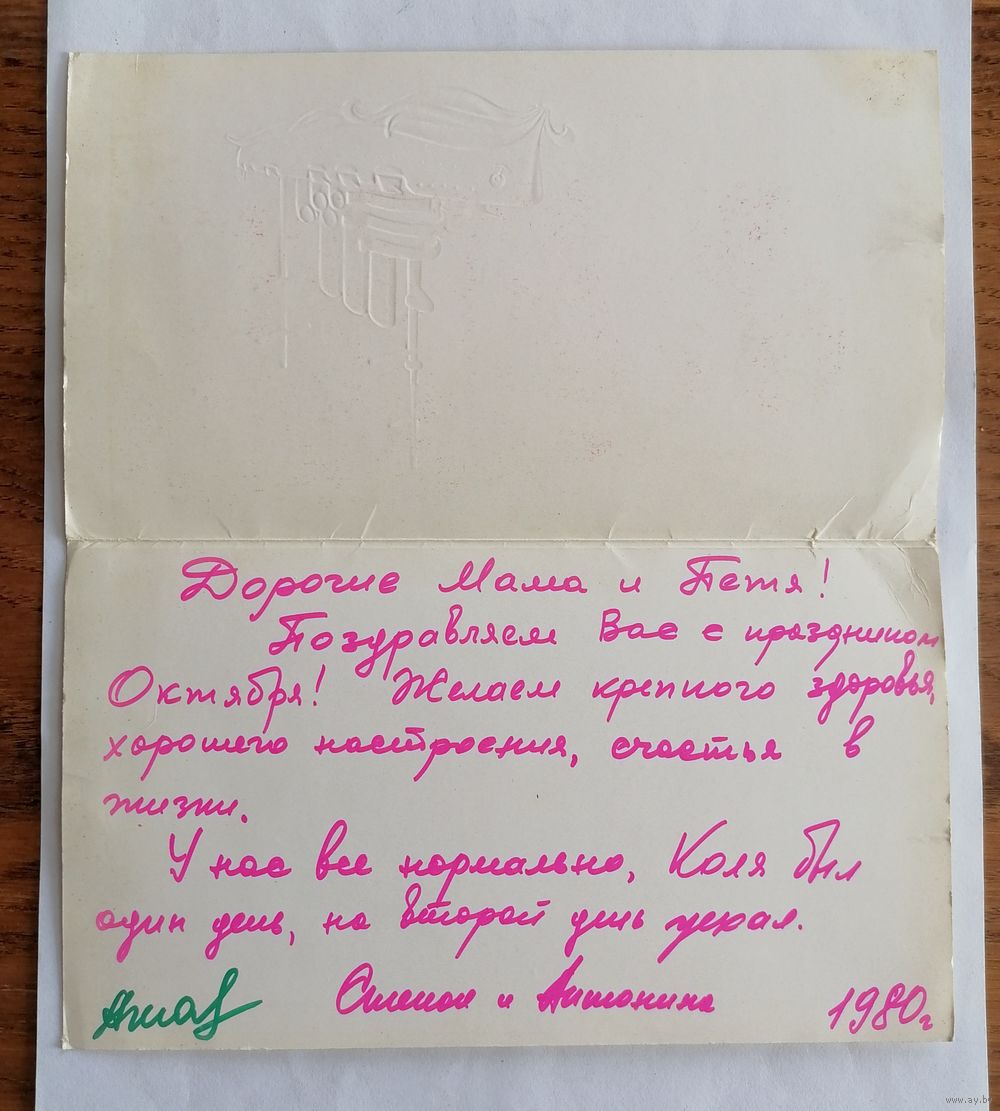 Дорогие Мама и Петя!
Поздравляем Вас с праздником
Октября! Желаем крепкого здоровья,
хорошего настроения, счастья в
жизни.
У нас все нормально, Коля был
один день, на второй день уехал.
Степан и Антонина
1980г
www.ay.by